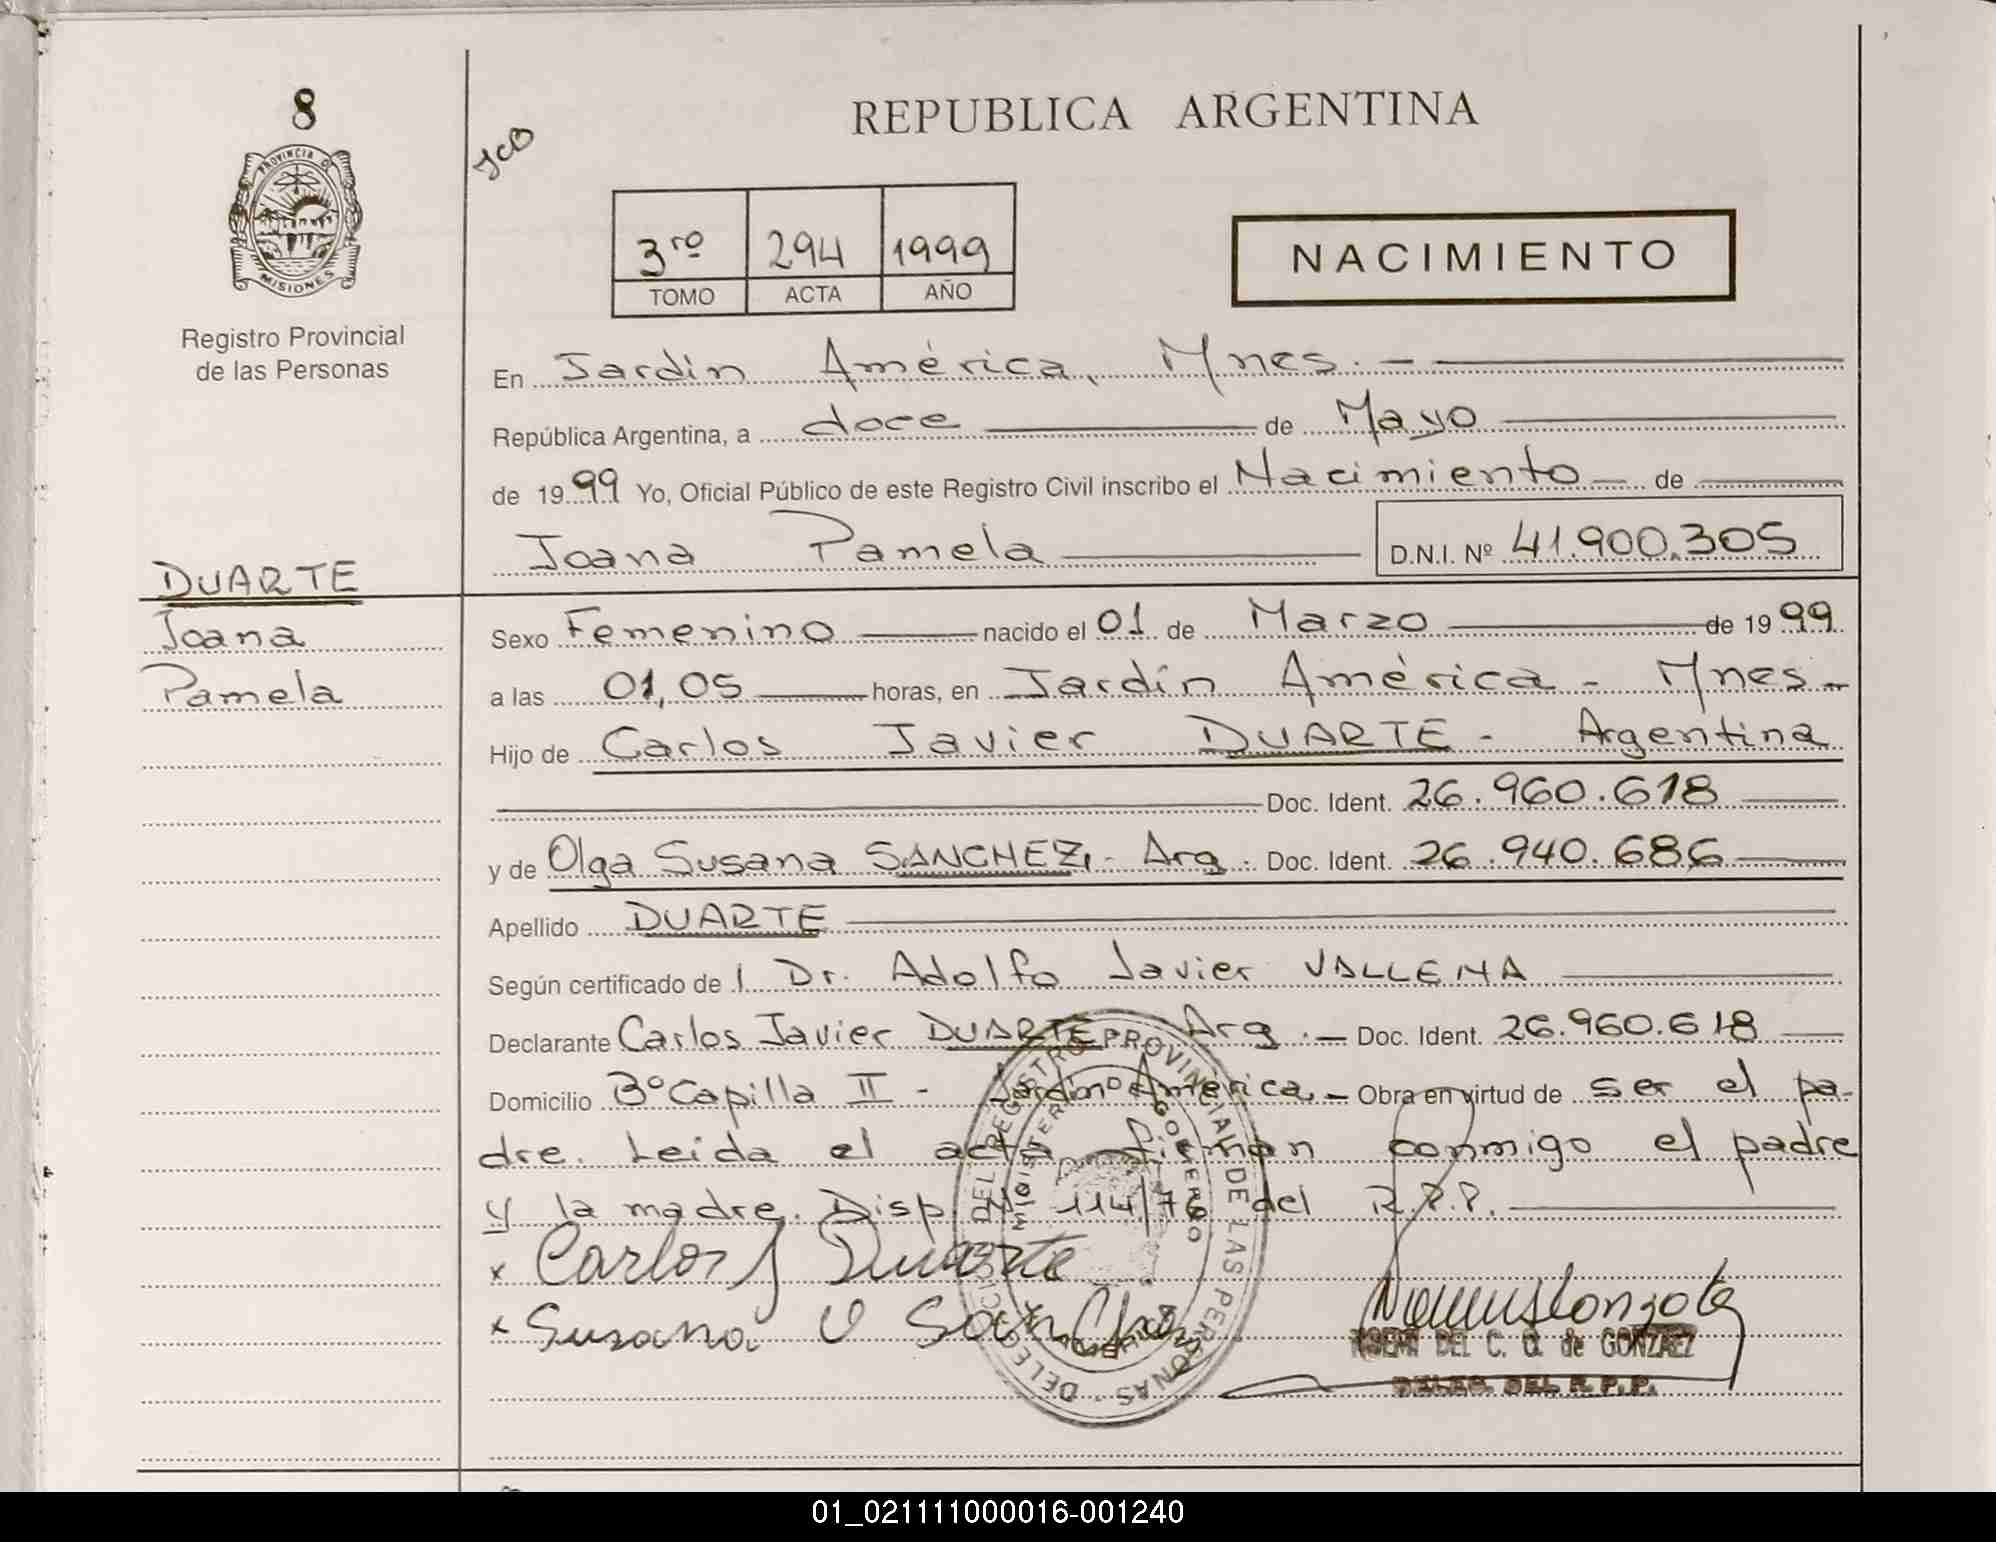 8
PROVINCIA D
MISIONES
Registro Provincial
de las Personas
DUARTE
Joana
Pamela
REPUBLICA ARGENTINA
3ro 294 1999
TOMO ACTA AÑO
NACIMIENTO
En Jardín América, Mnes. -
República Argentina, a doce de Mayo
de 1999 Yo, Oficial Público de este Registro Civil inscribo el Nacimiento de
Joana Pamela D.N.I. Nº 41.900.305
Sexo Femenino nacido el 01 de Marzo de 1999
a las 01,05 horas, en Jardín América - Mnes -
Hijo de Carlos Javier DUARTE - Argentina
Doc. Ident. 26.960.618
y de Olga Susana SANCHEZ, - Arg. Doc. Ident. 26.940.686
Apellido DUARTE
Según certificado de l Dr. Adolfo Javier
Declarante Carlos Javier DUARTE Arg. - Doc. Ident. 26.960.618
Domicilio Bº Capilla II - Jardín América. - Obra en virtud de ser el pa-
dre. Leida el acta firman conmigo el padre
y la madre. Disp. Nº 114/76 del R.P.P.
x Carlos J Duarte
x Susana O Sanchez
DELEGACION DEL REGISTRO PROVINCIAL DE LAS PERSONAS
MINISTERIO GOBIERNO
DEL C. Q. de GONZALEZ
DELEG. DEL R.P.P.
01_021111000016-001240